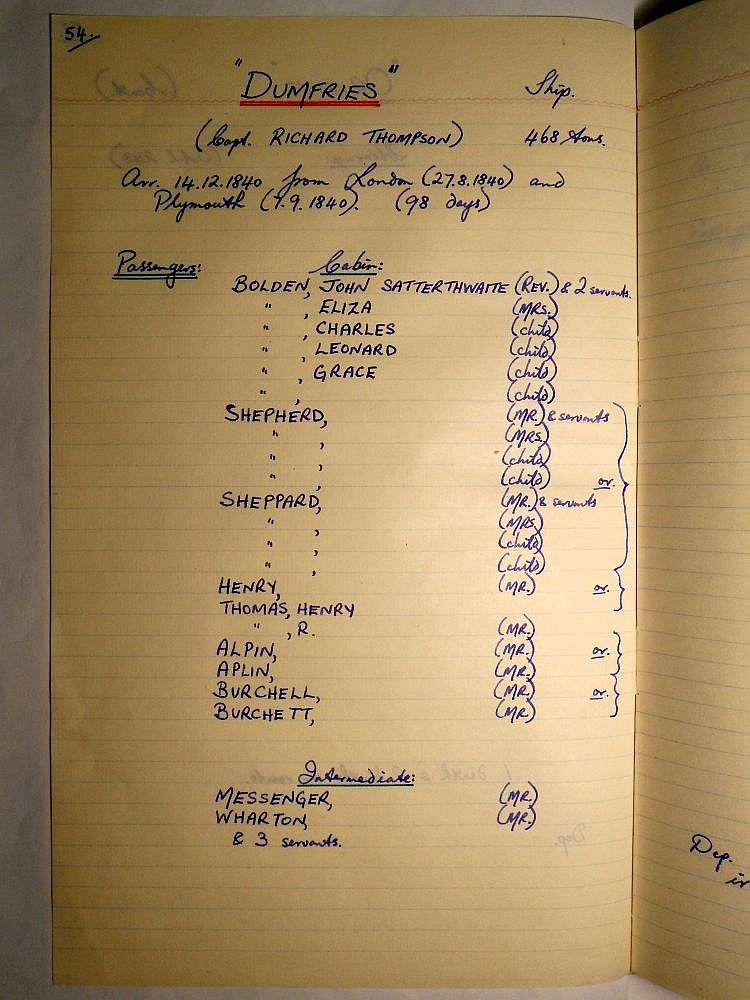 54.
"DUMFRIES" Ship.
(Capt. RICHARD THOMPSON) 468 tons.
Arr. 14.12.1840 from London (27.8.1840) and
Plymouth (7.9.1840). (98 days)
Passengers: Cabin:
BOLDEN, JOHN SATTERTHWAITE (REV.) & 2 servants.
" , ELIZA (MRS.)
" , CHARLES (child)
" , LEONARD (child)
" , GRACE (child)
" , (child)
SHEPHERD, (MR.) & servants
" , (MRS.)
" , (child)
" , (child) or.
SHEPPARD, (MR.) & servants
" , (MRS.)
" , (child)
" , (child)
HENRY, (MR.) or.
THOMAS, HENRY
" , R. (MR.)
ALPIN, (MR.) or.
APLIN, (MR.)
BURCHELL, (MR.) or.
BURCHETT, (MR.)
Intermediate:
MESSENGER, (MR.)
WHARTON, (MR.)
& 3 servants.
Dep.